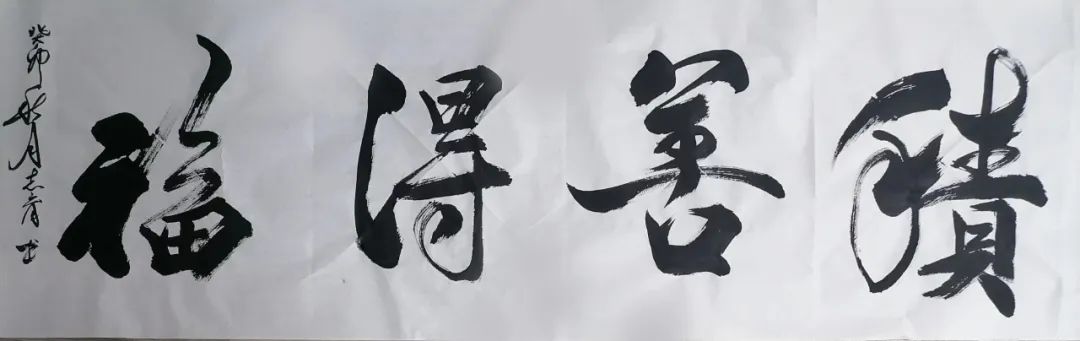 積善得福
癸卯秋月志有书